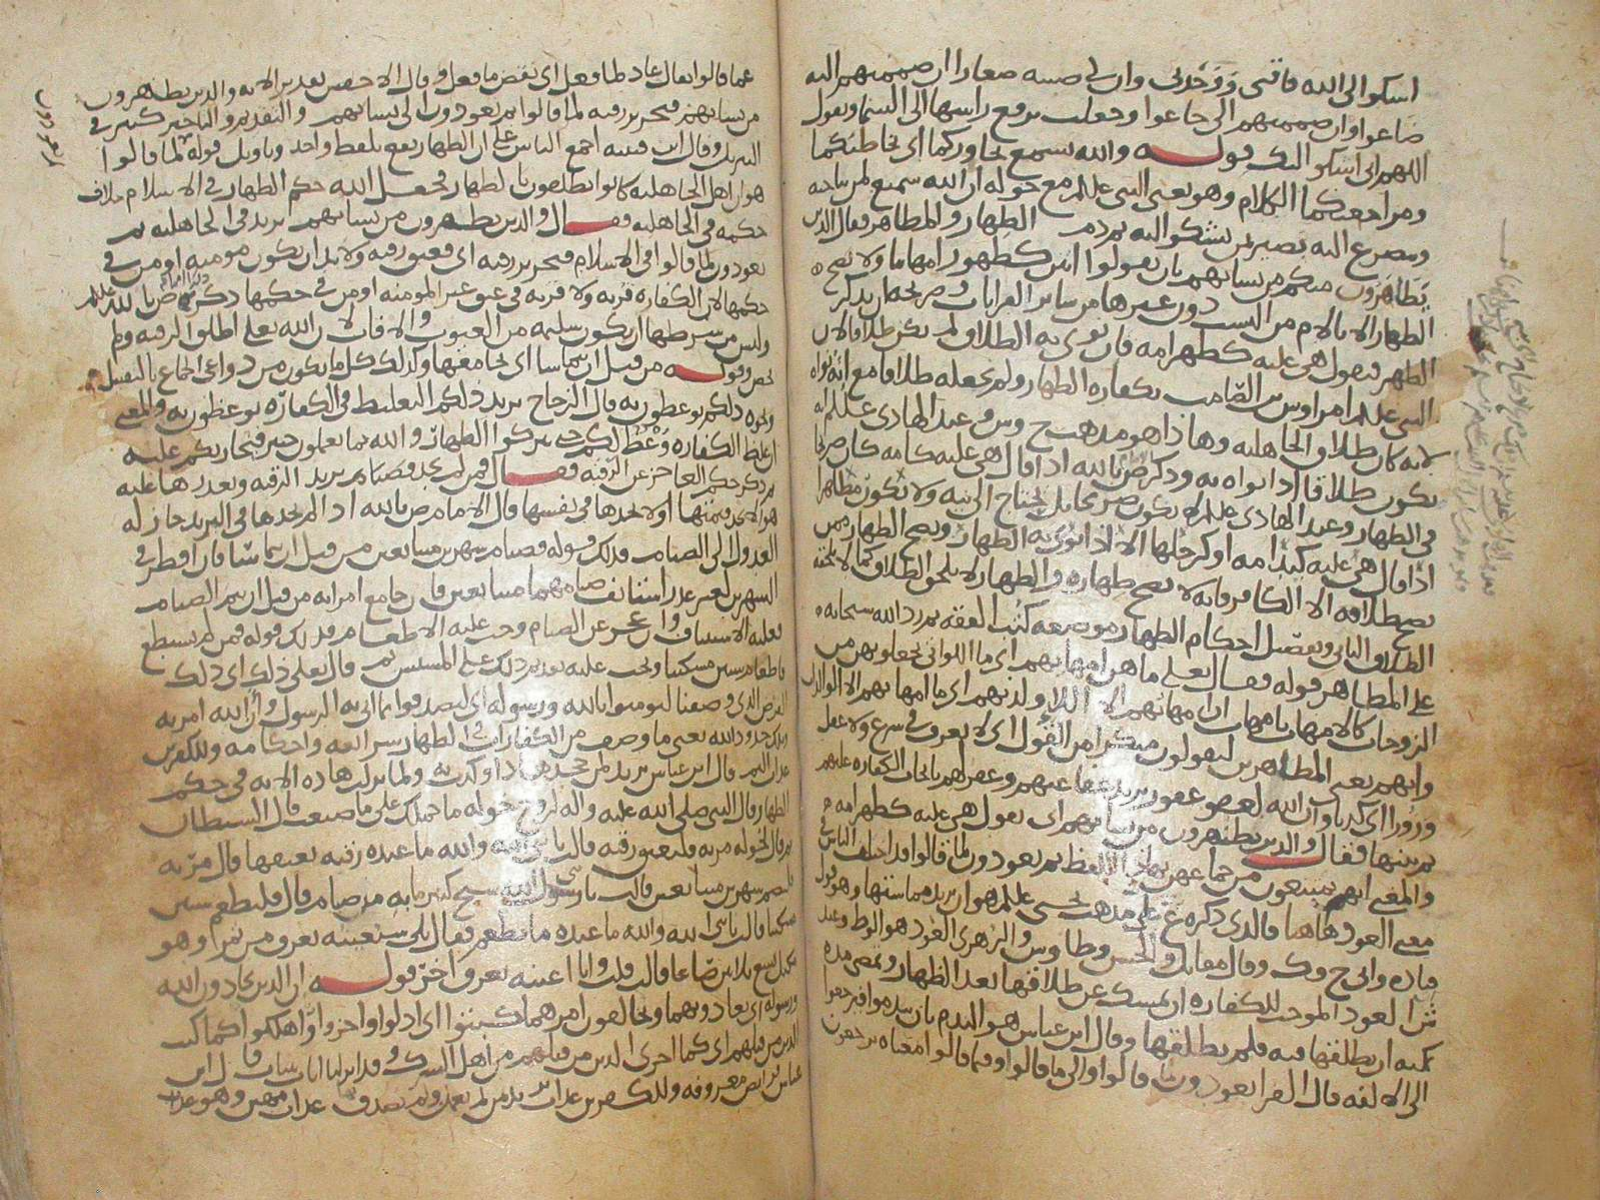 اشكوا الى الله فاقتى ووحدتى وان لى صبيه صغارا ان ضممتهم اليه
ضاعوا وان ضممتهم الى جاعوا وجعلت ترفع راسها الى السما وتقول
اللهم انى اشكوا اليك قوله والله يسمع تحاوركما اى تخاطبكما
ومراجعتكما الكلام وهو يعنى النبى علىلم مع خوله ان الله سميع لمن يناجيه
ويتضرع اليه بصير بمن يشكوا اليه ثم ذم الظهار والمظاهر فقال الذين
يظاهرون منكم من نسائهم بان يقولوا انتن كظهور امهاتنا ولا يصح
الظهار الا بالام من النسب دون غيرها من ساير القرابات وصريحه ان يذكر
الظهر فيقول هى عليه كظهر امه فان نوى به الطلاق لم يكن طلاقا لان
النبى علىلم امر اوس بن الصامت بكفاره الظهار ولم يجعله طلاقا مع انه نواه
لانه كان طلاق الجاهليه وهاذا هو مذهب ح وش وعند الهادى علىلم انه
يكون طلاقا اذا نواه به وذكر ض بالله اذا قال هى عليه كامه كان صريحا
فى الظهار وعند الهادى علىلم لا يكون صريحا بل يحتاج الى نيه ولا يكون مظاهرا
اذا قال هى عليه كيد امه او كرجلها الا اذا نوى به الظهار ويصح الظهار ممن
يصح طلاقه الا الكافر فانه لا يصح ظهاره والظهار لا يلحق الطلاق كما لا يلحقه
الطلاق الثانى وتفصيل احكام الظهار موضعه كتب الفقه ثم رد الله سبحانه
على المظاهر قوله فقال تعلى ما هن امهاتهم اى ما اللواتى تجعلونهن من
الزوجات كالامهات بامهات ان امهاتهم الا اللا ولدنهم اى ما امهاتهم الا الوالدات
وانهم يعنى المظاهرين ليقولون منكرا من القول اى لا يعرف فى شرع ولا عقل
وزورا اى كذبا وان الله لعفو غفور يريد عفا عنهم وغفر لهم بايجاب الكفاره عليهم
ثم بينها فقال والذين يظهرون من نسائهم اى يقول هى عليه كظهر امه
والمعنى انهم يمتنعون من جماعهن بهاذا اللفظ ثم يعودون لما قالوا قد اختلف الناس فى
معنى العود هاهنا فالذى ذكره ع على مذهب يحيى علىلم هو ان يريد مماستها وهو قول
قتاده وابى ح وك وقال مقاتل والحسن وطاوس والزهرى العود هو الوطى وعند
ش العود الموجب للكفاره ان يمسك عن طلاقها بعد الظهار وتمضى مده
يمكنه ان يطلقها فيه فلم يطلقها وقال ابن عباس هو الندم بان يندموا فيرجعوا
الى الالفه قال الفرا يعودون لما قالوا والى ما قالوا وفيما قالوا معناه يرجعون
عما قالوا يقال عاد لما فعل اى نقض ما فعل وقال الاخفش تقدير الايه والذين يظهرون
من نسائهم فتحرير رقبه لما قالوا ثم يعودون الى نسائهم والتقديم والتاخير كثير فى
التنزيل وقال ابن قتيبه اجمع الناس على ان الظهار يقع بلفظ واحد وتاويل قوله لما قالوا
هو ان اهل الجاهليه كانوا يطلقون بالظهار فجعل الله حكم الظهار فى الاسلام خلاف
حكمه فى الجاهليه فقال والذين يظهرون من نسائهم يريد فى الجاهليه ثم
يعودون لما قالوا فى الاسلام فتحرير رقبه اى فعتق رقبه ولا بد ان تكون مومنه او من فى
حكمها لان الكفاره قربه ولا قربه فى عتق غير المومنه او من فى حكمها ذكره ض بالله علىلم
وليس من شرطها ان تكون سليمه من العيوب والافات لان الله تعلى اطلق الرقبه ولم
يخص وقوله من قبل ان يتماسا اى يجامعها وكذلك كل ما يكون من دواعى الجماع بالتقبيل
ونحوه ذلكم توعظون به قال الزجاج يريد ذلكم التغليظ فى الكفاره توعظون به والمعنى
ان غلظ الكفاره وعظ لكم حتى تتركوا الظهار والله بما تعملون خبير فيجازيكم عليه
ثم ذكر حكم العاجز عن الرقبه فقال فمن لم يجد فصيام يريد الرقبه وتعذرها عليه
هو الا يجد ثمنها اولا يجدها فى نفسها قال الامام ض بالله اذا لم يجدها فى البريد جاز له
العدول الى الصيام فذلك قوله فصيام شهرين متتابعين من قبل ان يتماسا فان افطر فى
الشهرين لغير عذر استانف صيامهما متتابعين فان جامع امراته من قبل ان يتم الصيام
فعليه الاستيناف وان عجز عن الصيام وجب عليه الاطعام فذلك قوله فمن لم يستطع
فاطعام ستين مسكينا ويجب عليه تقديم ذلك على المسيس ثم قال تعلى ذلك اى ذلك
الفرض الذى وصفنا لتومنوا بالله ورسوله اى لتصدقوا بما اتى به الرسول وان الله امر به
وتلك حدود الله يعنى ما وصف من الكفارات فى الظهار شرايعه واحكامه وللكفرين
عذاب اليم قال ابن عباس يريد لمن جحد هذا وكذب به ولما نزلت هاذه الايه فى حكم
الظهار قال النبى صلى الله عليه واله لزوج خوله ما حملك على ما صنعت قال الشيطان
ثم قال لخوله مريه فليعتق رقبه قالت يا نبى الله والله ما عنده رقبه يعتقها قال مريه
فليصم شهرين متتابعين قالت يا رسول الله شيخ كبير ما به من صيام قال فليطعم ستين
مسكينا قالت يا نبى الله والله ما عنده ما يطعم فقال بلى سنعينه بعرق من تمر وهو
مكتل يسع ثلاثين صاعا قالت قلت وانا اعينه بعرق اخر قوله ان الذين يحادون الله
ورسوله اى يعادونهما ويخالفون امرهما كبتوا اى اذلوا واخزوا واهلكوا كما كبت
الذين من قبلهم اى كما اخزى الذين من قبلهم من اهل الشرك وقد انزلنا ايات بينات قال ابن
عباس فرايض معروفه وللكفرين عذاب يريد من لم يعمل ولم يصدق عذاب مهين وهو عذاب